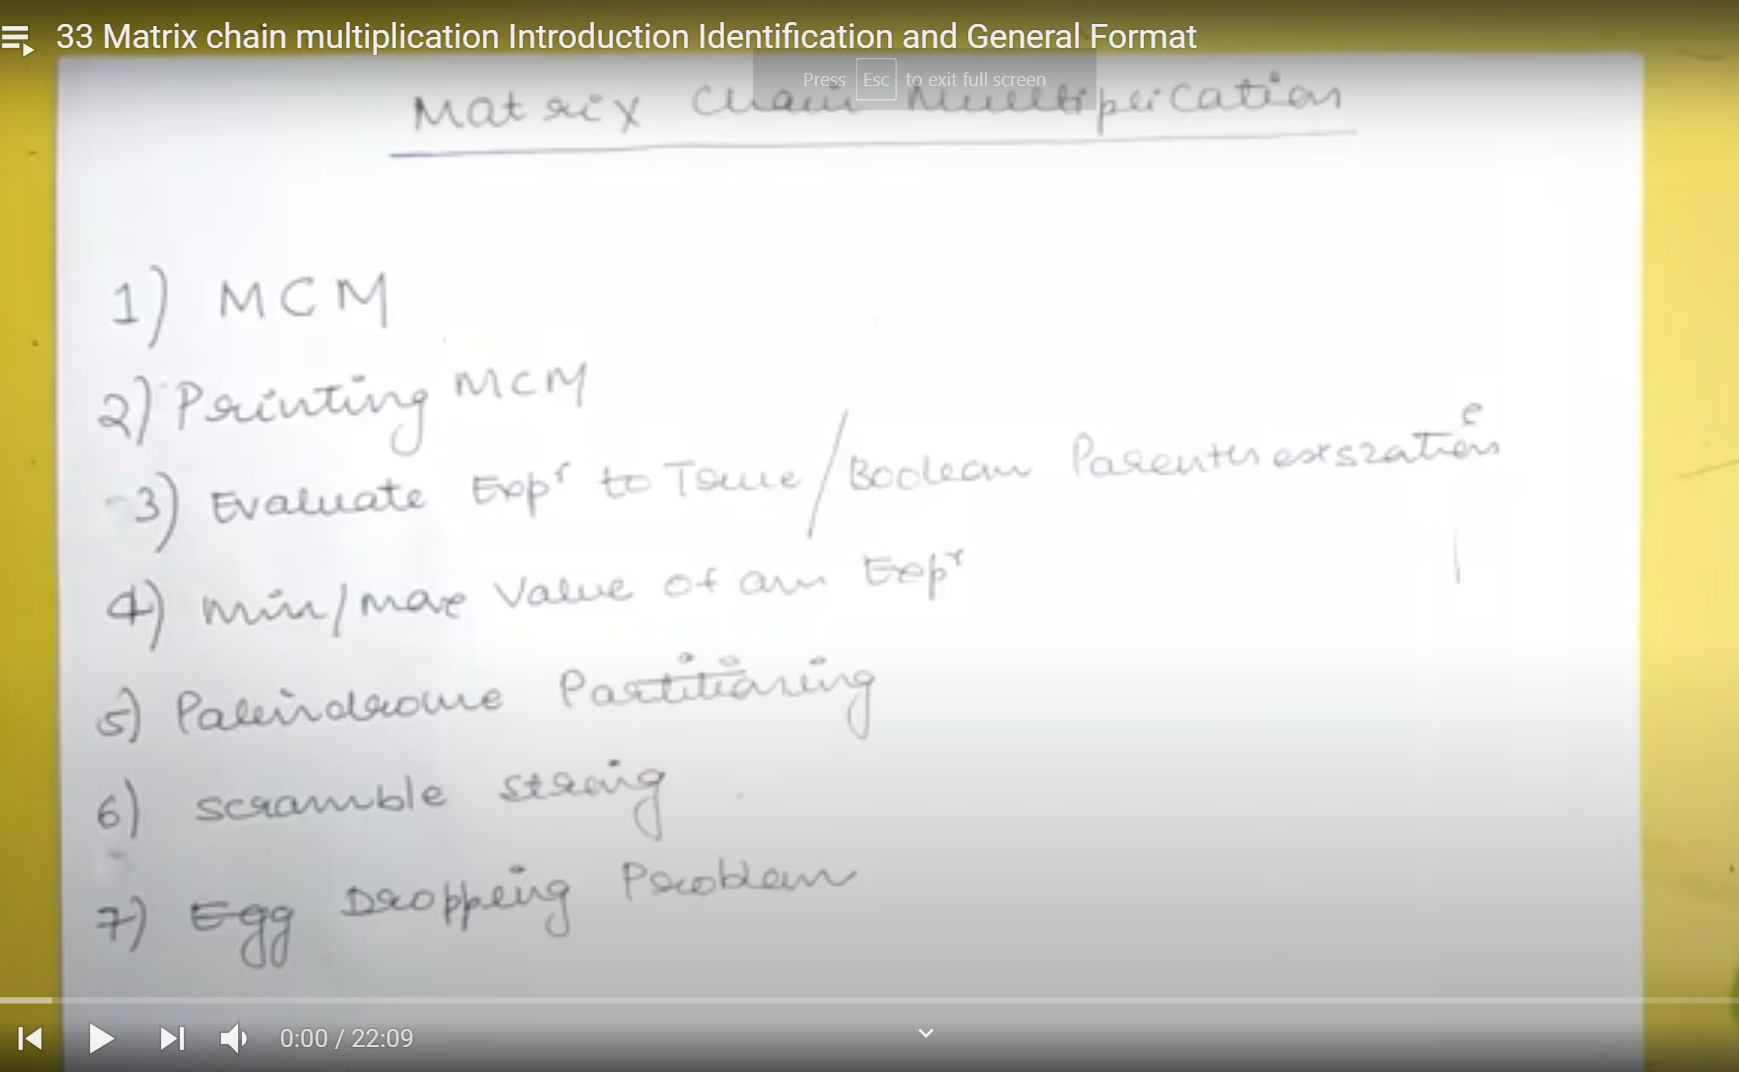 33 Matrix chain multiplication Introduction Identification and General Format
Press Esc to exit full screen
Matrix Chain Multiplication
1) MCM
2) Printing MCM
3) Evaluate Expr to True / Boolean Parenthesization
4) Min/Max Value of an Expr
5) Palindrome Partitioning
6) Scramble String
7) Egg Dropping Problem
0:00 / 22:09